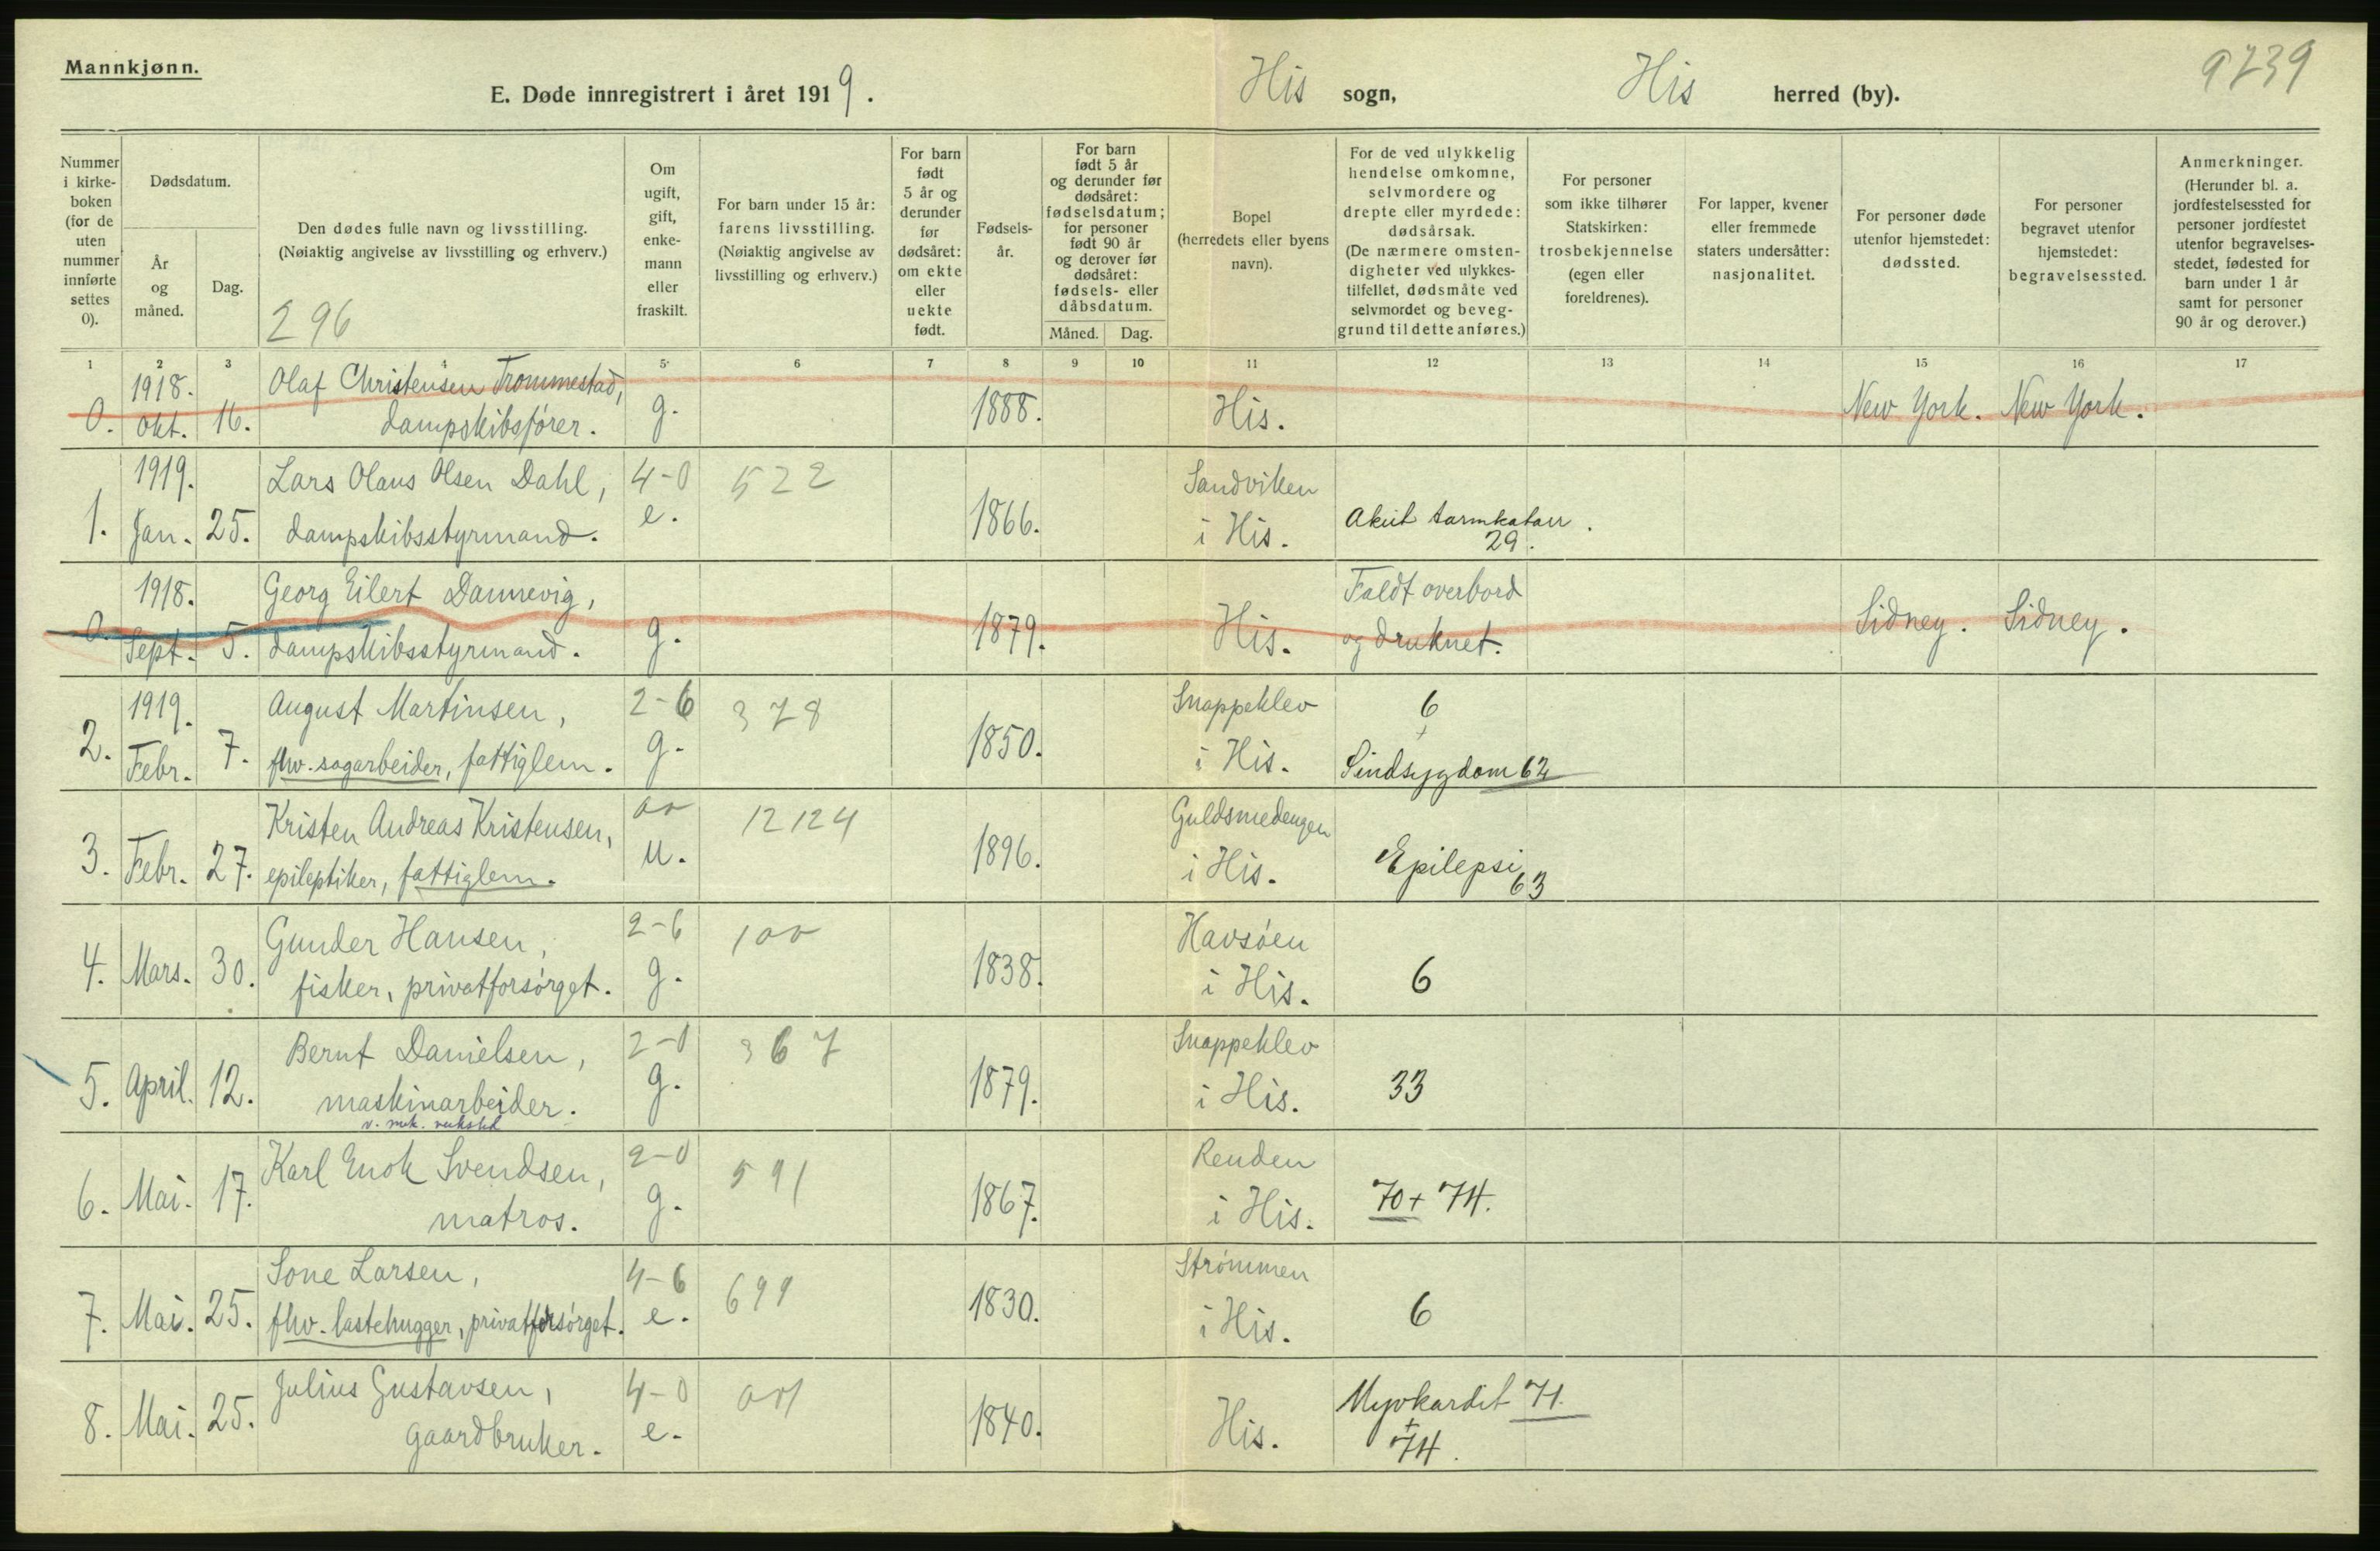 Mannkjønn.
E. Døde innregistrert i året 1919.
His sogn,
His herred (by).
9739
Nummer i kirke-boken (for de uten nummer innførte settes 0).
Dødsdatum.
År og måned.
Dag.
Den dødes fulle navn og livsstilling.
(Nøiaktig angivelse av livsstilling og erhverv.)
296
Om ugift, gift, enke-mann eller fraskilt.
For barn under 15 år: farens livsstilling.
(Nøiaktig angivelse av livsstilling og erhverv.)
For barn født 5 år og derunder før dødsåret: om ekte eller uekte født.
Fødsels-år.
For barn født 5 år og derunder før dødsåret: fødselsdatum; for personer født 90 år og derover før dødsåret: fødsels- eller dåbsdatum.
Måned. Dag.
Bopel (herredets eller byens navn).
For de ved ulykkelig hendelse omkomne, selvmordere og drepte eller myrdede: dødsårsak.
(De nærmere omsten-digheter ved ulykkes-tilfellet, dødsmåte ved selvmordet og beveg-grund til dette anføres.)
For personer som ikke tilhører Statskirken: trosbekjennelse (egen eller foreldrenes).
For lapper, kvener eller fremmede staters undersåtter: nasjonalitet.
For personer døde utenfor hjemstedet: dødssted.
For personer begravet utenfor hjemstedet: begravelsessted.
Anmerkninger.
(Herunder bl. a. jordfestelsessted for personer jordfestet utenfor begravelses-stedet, fødested for barn under 1 år samt for personer 90 år og derover.)
1 2 3 4 5 6 7 8 9 10 11 12 13 14 15 16 17
1918. Olaf Christensen Trommestad,
0. Okt. 16. dampskibsfører. g. 1888. His. New York. New York.
1919. Lars Olaus Olsen Dahl, 4-0 522 Sandviken
1. Jan. 25. dampskibsstyrmand. e. 1866. i His. Akut tarmkatarr.
29.
1918. Georg Eilert Dannevig, Faldt overbord
0. Sept. 5. dampskibsstyrmand. g. 1879. His. og druknet. Sidney. Sidney.
1919. August Martinsen, 2-6 378 Snappeklev 6
+
2. Febr. 7. fhv. sagarbeider, fattiglem. g. 1850. i His. Sindsygdom 62
Kristen Andreas Kristensen, 12124 Guldsmedengen
3. Febr. 27. epileptiker, fattiglem. u. 1896. i His. Epilepsi 63
Gunder Hansen, 2-6 Havsøen
4. Mars. 30. fisker, privatforsørget. g. 1838. i His. 6
Bernt Danielsen, 2-0 367 Snappeklev
5. April. 12. maskinarbeider. g. 1879. i His. 33
v. mek. verksted
Karl Enok Svendsen, 2-0 591 Renden
6. Mai. 17. matros. g. 1867. i His. 70 + 74.
Sone Larsen, 4-6 699 Strømmen
7. Mai. 25. fhv. lastehugger, privatforsørget. e. 1830. i His. 6
Julius Gustavsen, 4-0 Myokardit 71.
+
8. Mai. 25. gaardbruker. e. 1840. His. 74.